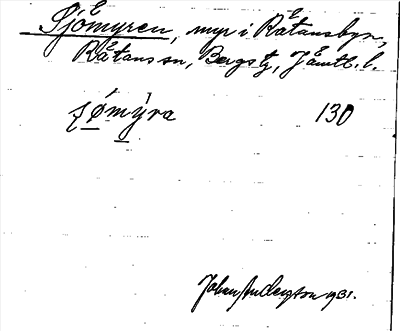 Sjömyren, myr i Råtansbyn,
Råtans sn, Bergs tg, Jämtl. l.
sjömýra 130
Johan Anderson 1931.